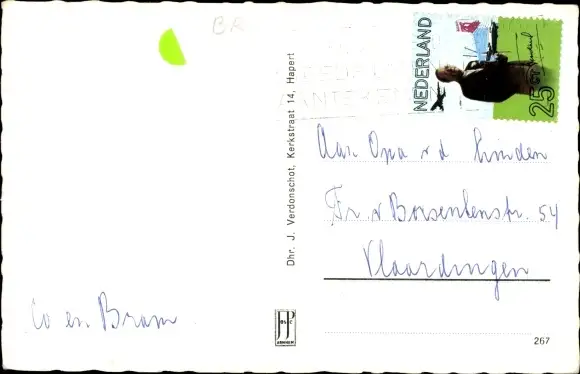 BR
NEDERLAND
25 CT
Dhr. J. Verdonschot, Kerkstraat 14, Hapert
Aan Opa v d Linden
Fr. v Borselenstr. 54
Vlaardingen
Co en Bram
JP
ARNHEM
267